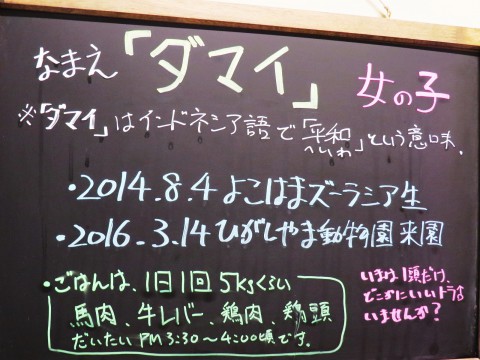 なまえ「ダマイ」女の子
※「ダマイ」はインドネシア語で「平和」という意味.
へいわ
・2014.8.4 よこはまズーラシア生
・2016.3.14 ひがしやま動物園来園
・ごはんは、1日1回5kgくらい
馬肉、牛レバー、鶏肉、鶏頭
だいたいPM3:30〜4:00頃です。
いまは1頭だけ、
どこかにいいトラは
いませんか?